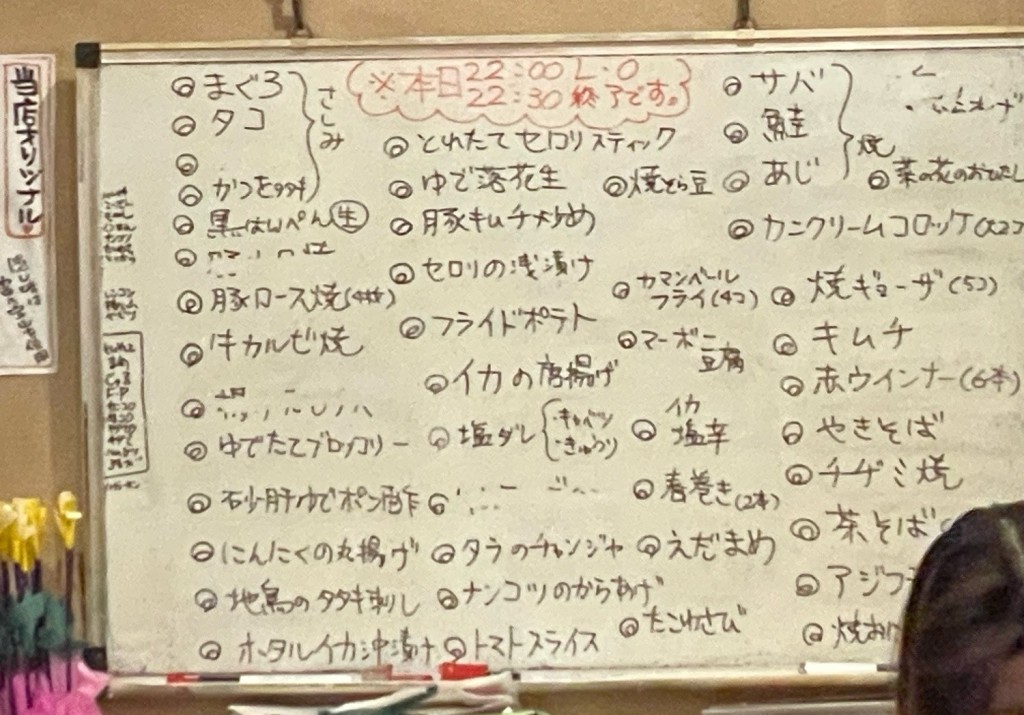 当店オリジナル
※本日22:00 L・O
22:30 終了です。
◎まぐろ
◎タコ
◎かつをタタキ
さしみ
◎黒はんぺん 生
◎豚ロース焼(4枚)
◎牛カルビ焼
◎ゆでたてブロッコリー
◎砂肝ゆでポン酢
◎にんにくの丸揚げ
◎地鳥のタタキ刺し
◎ホタルイカ沖漬け
◎とれたてセロリスティック
◎ゆで落花生
◎焼そら豆
◎豚キムチ炒め
◎セロリの浅漬け
◎フライドポテト
◎イカの唐揚げ
◎塩ダレ
・キャベツ
・きゅうり
◎タラのチャンジャ
◎ナンコツのからあげ
◎トマトスライス
◎カマンベール
フライ(4コ)
◎マーボー
豆腐
◎イカ
塩辛
◎春巻き(2本)
◎えだまめ
◎たこわさび
◎サバ
◎鮭
◎あじ
焼
◎菜の花のおひたし
◎カニクリームコロッケ(2コ)
◎焼ギョーザ(5コ)
◎キムチ
◎赤ウインナー(6本)
◎やきそば
◎チヂミ焼
◎茶そば
◎アジフ
◎焼おに